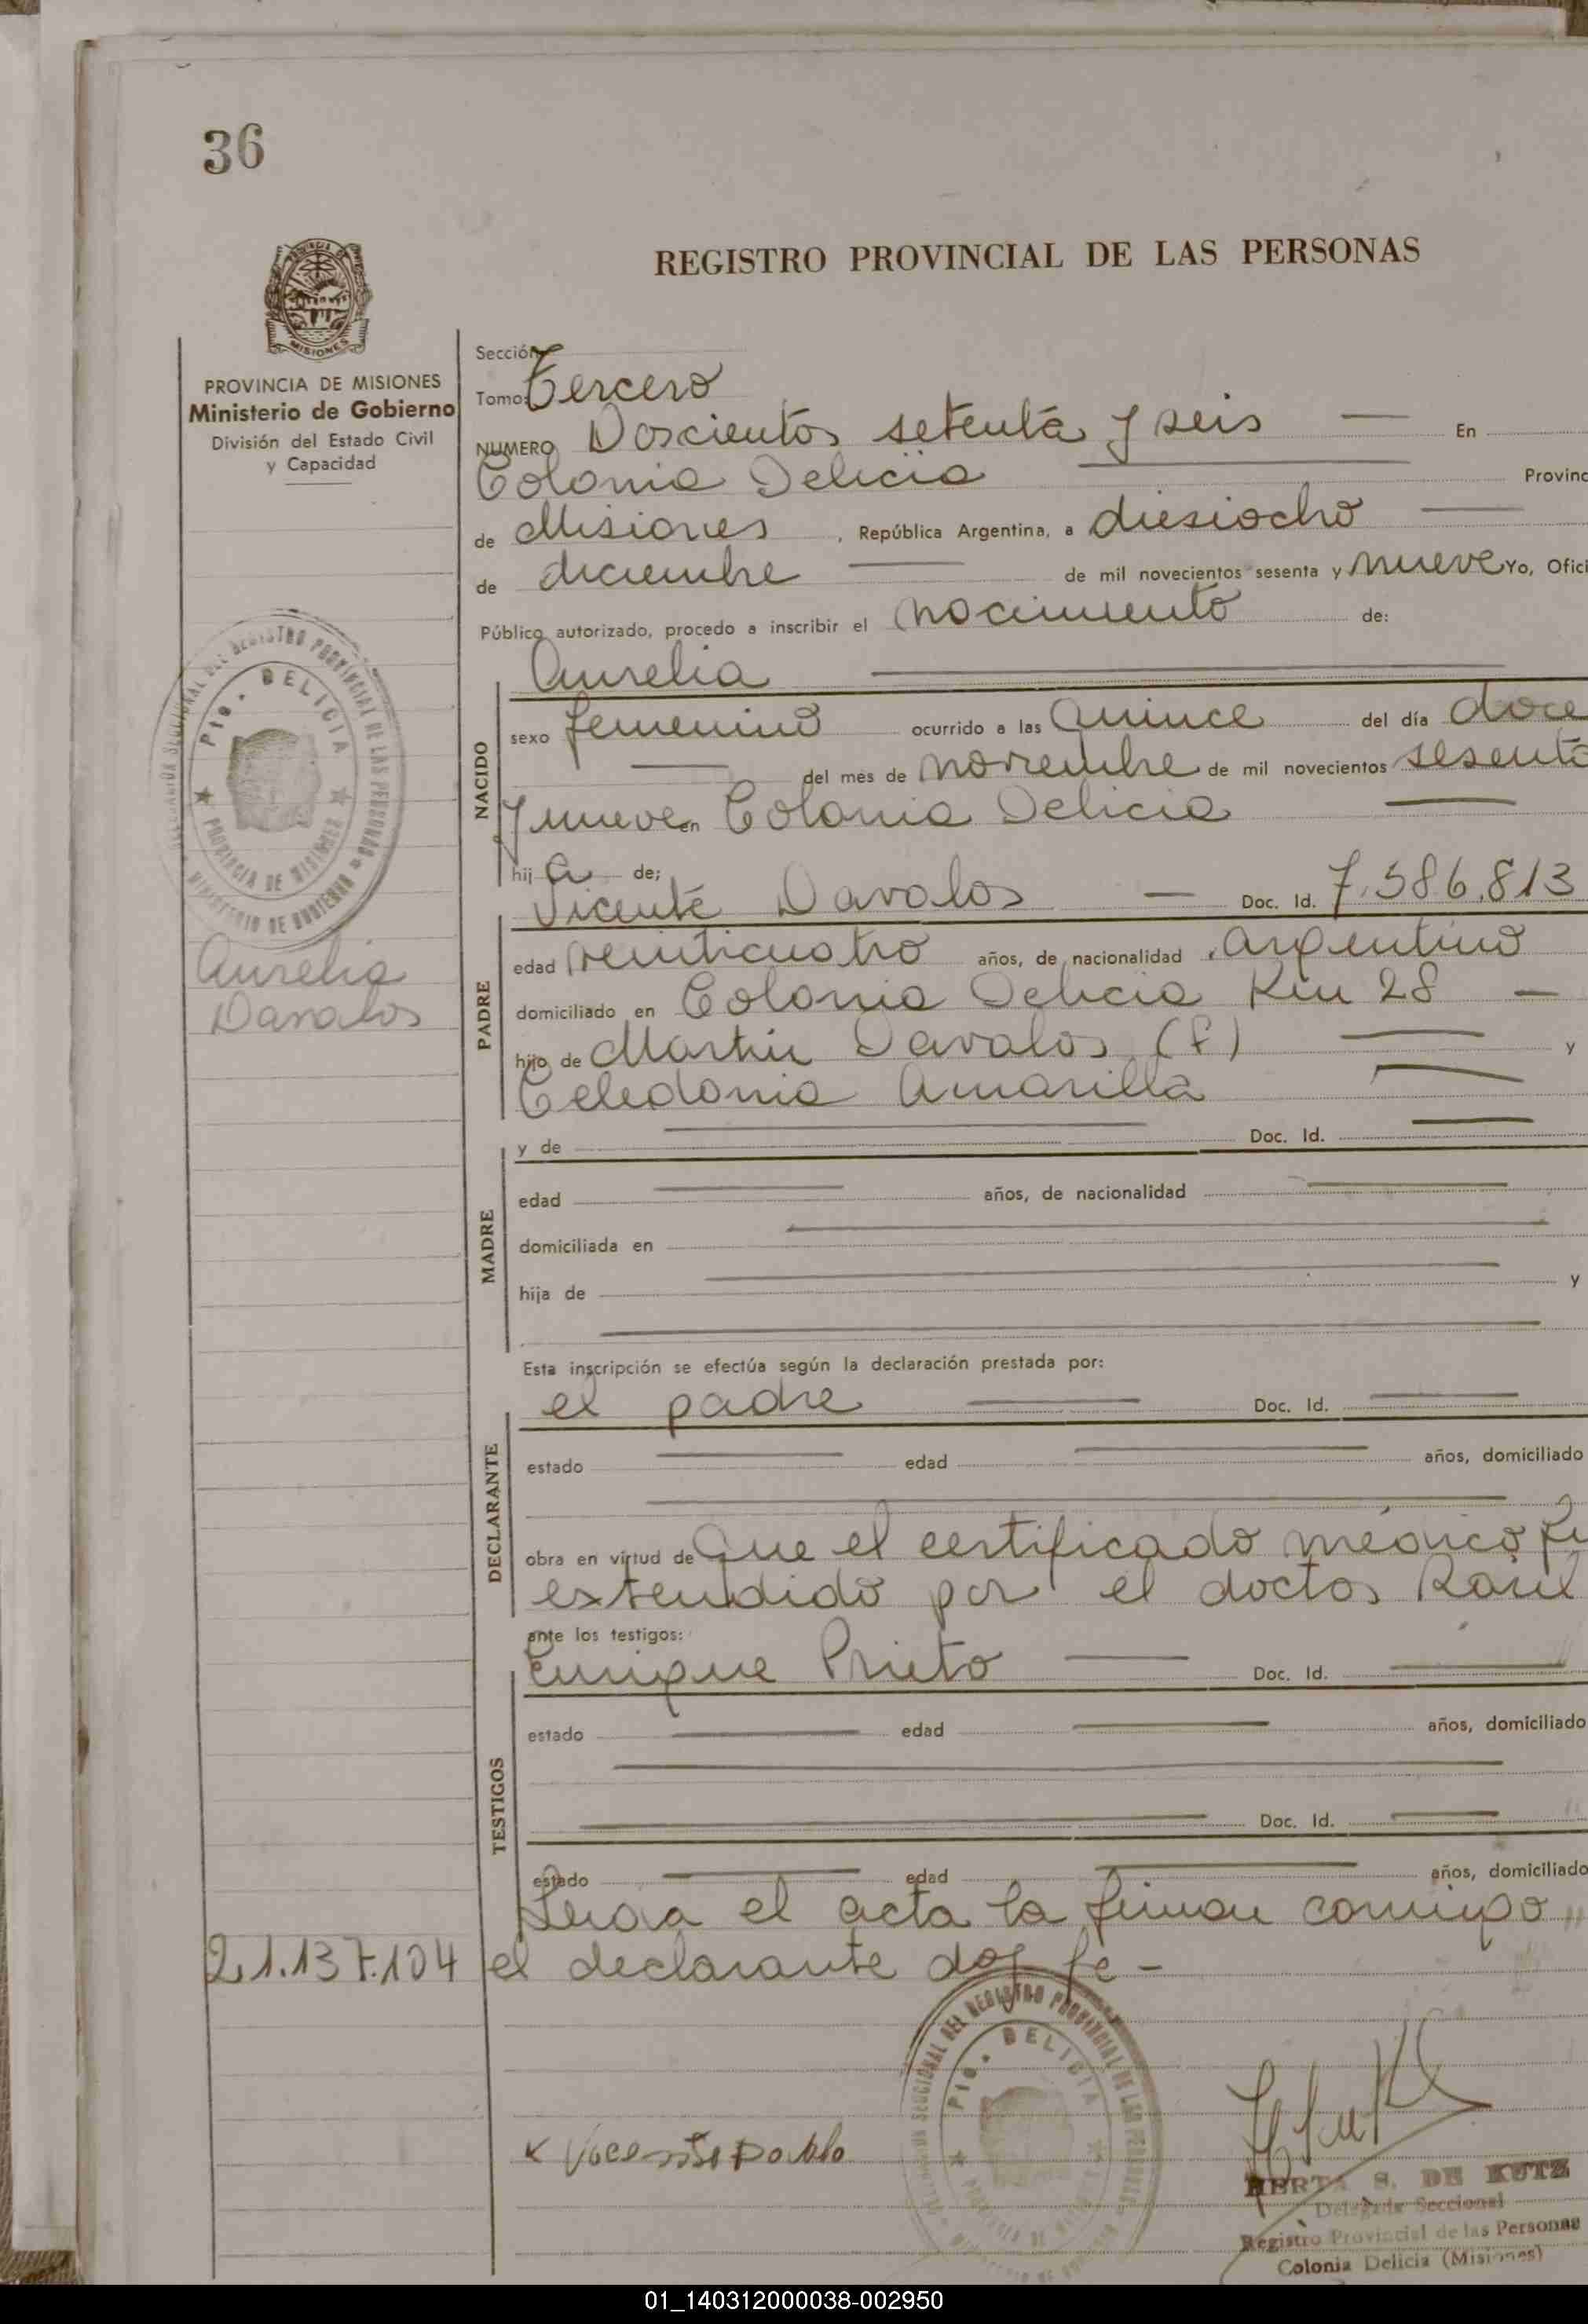 36
REGISTRO PROVINCIAL DE LAS PERSONAS
MISIONES
PROVINCIA DE MISIONES
Ministerio de Gobierno
División del Estado Civil
y Capacidad
Sección
Tomo: Tercero
NUMERO Doscientos setenta y seis — En
Colonia Delicia — Provinc
de Misiones, República Argentina, a diesiocho —
de diciembre — de mil novecientos sesenta y nueve Yo, Ofici
Público autorizado, procedo a inscribir el nacimiento de:
NACIDO
Aurelia —
sexo femenino ocurrido a las quince del día doce
— del mes de noviembre de mil novecientos sesenta
y nueve en Colonia Delicia —
hija de;
PADRE
Vicente Davalos — Doc. Id. 7.586.813
edad veinticuatro años, de nacionalidad argentino
domiciliado en Colonia Delicia Km 28 —
hijo de Martin Davalos (f) — y
Celedonia Amarilla —
MADRE
y de — Doc. Id. —
edad — años, de nacionalidad —
domiciliada en —
hija de — y
—
Esta inscripción se efectúa según la declaración prestada por:
DECLARANTE
el padre — Doc. Id. —
estado — edad — años, domiciliado
—
obra en virtud de Que el certificado médico fu
extendido por el doctor Raúl
ante los testigos:
TESTIGOS
Enrique Prieto — Doc. Id. —
estado — edad — años, domiciliado
—
— Doc. Id. —
estado — edad — años, domiciliado
Leida el acta la firman conmigo "
el declarante doy fe -
DELEGACION SECCIONAL DEL REGISTRO PROVINCIAL DE LAS PERSONAS
Pto. DELICIA
PROVINCIA DE MISIONES
MINISTERIO DE GOBIERNO
Aurelia
Davalos
21.137.104
SECCIONAL DEL REGISTRO PROVINCIAL DE LAS PERSONAS
Pto. DELICIA
HERTA S. DE KUTZ
Delegada Seccional
Registro Provincial de las Personas
Colonia Delicia (Misiones)
01_140312000038-002950